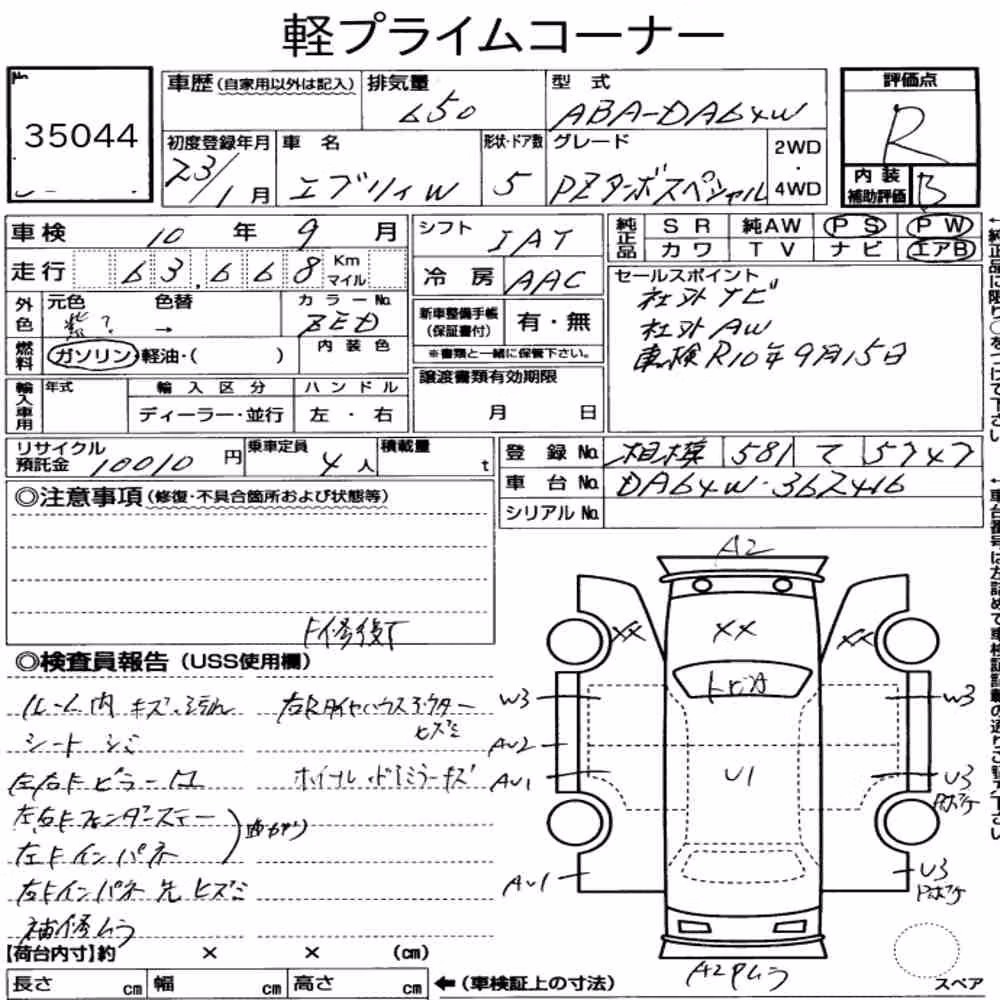 軽プライムコーナー
No.
35044
車歴 (自家用以外は記入) 排気量 650 型式 ABA-DA64W
初度登録年月 23/1月 車名 エブリィW 形状・ドア数 5 グレード PZターボスペシャル 2WD・4WD
評価点 R
内装補助評価 B
車検 10年9月
走行 63,668 Km マイル
シフト IAT
冷房 AAC
純正品 SR 純AW PS PW
カワ TV ナビ エアB
セールスポイント
社外ナビ
社外AW
車検R10年9月15日
外色 元色 紫? 色替 → カラーNo. ZED
燃料 ガソリン・軽油・( ) 内装色
新車整備手帳(保証書付) 有・無
※書類と一緒に保管下さい。
輸入車用 年式 輸入区分 ハンドル
ディーラー・並行 左・右
譲渡書類有効期限
月 日
リサイクル預託金 10010円 乗車定員 4人 積載量 t
登録No. 相模 581 て 5747
車台No. DA64W-362416
シリアルNo.
◎注意事項(修復・不具合箇所および状態等)
F修復
◎検査員報告(USS使用欄)
ルーム内 キズ・汚れ
シート シミ
左右Fピラー
左右Fフェンダーステー
左Fインパネ
曲がり
右Fインパネ先 ヒズミ
補修ムラ
右Rタイヤハウスアウター
ヒズミ
ホイール・ドアミラーキズ
【荷台内寸】約 × × (cm)
長さ cm 幅 cm 高さ cm ←(車検証上の寸法)
A2
XX XX XX
トビA
W3 W3
AU2
AU1 U1 U3
Pボケ
AU1 U3
Pボケ
A2Pムラ
スペア
←純正品に限り○をつけて下さい
←車台番号は左詰めで車検証記載の通りご記入下さい